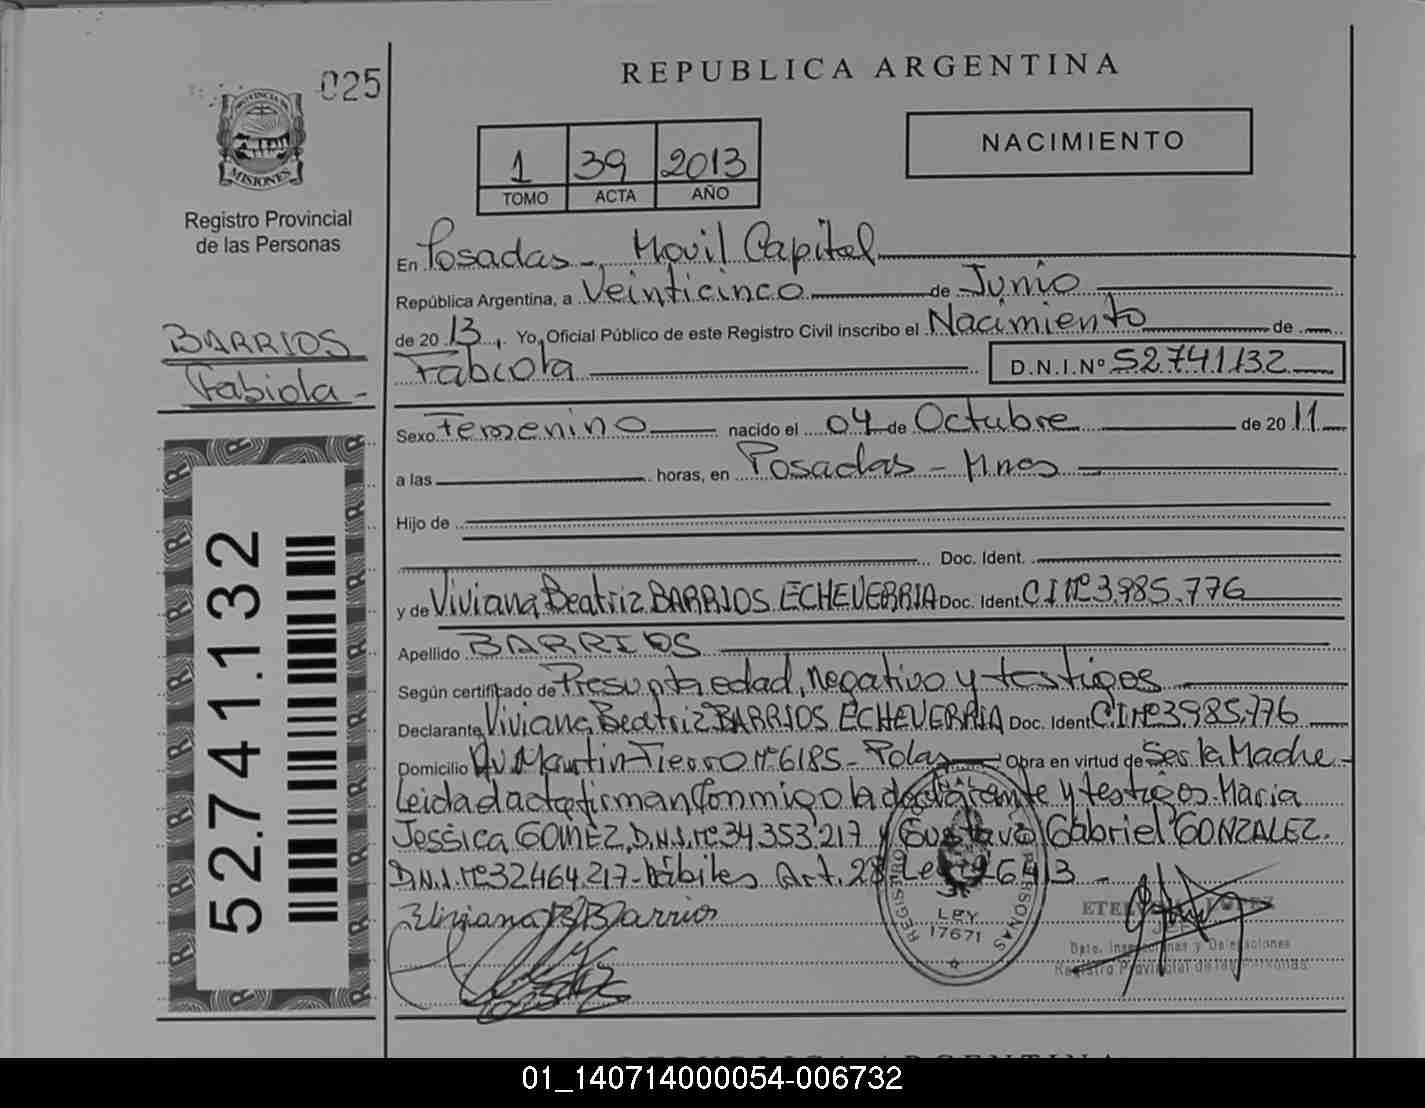 025
REPUBLICA ARGENTINA
PROVINCIA DE
MISIONES
1 39 2013
TOMO ACTA AÑO
NACIMIENTO
Registro Provincial
de las Personas
En Posadas -, Movil Capital
República Argentina, a Veinticinco de Junio
de 2013, Yo, Oficial Público de este Registro Civil inscribo el Nacimiento de
Fabiola D.N.I.Nº 52.741.132
BARRIOS
Fabiola -
Sexo Femenino nacido el 04 de Octubre de 2011
a las horas, en Posadas - Mnes
Hijo de
Doc. Ident.
y de Viviana Beatriz BARRIOS ECHEVERRIA Doc. Ident. C.I Nº 3.985.776
Apellido BARRIOS
Según certificado de Presunta edad, negativo y testigos
Declarante Viviana Beatriz BARRIOS ECHEVERRIA Doc. Ident C.I Nº 3.985.776
Domicilio Av. Martin Fierro Nº 6185 - Pdas Obra en virtud de Ser la Madre
Leida el acta firman Conmigo la declarante y testigos Maria
Jessica GOMEZ, D.N.I. Nº 34.353.217 y Gustavo Gabriel GONZALEZ.
D.N.I. Nº 32464.217 - hábiles Art. 28 Ley 26413 -
Viviana B Barrios
LEY
17671
REGISTRO
PERSONAS
JEFE
Dpto. Inspecciones y Delegaciones
Registro Provincial de las Personas
52.741.132
REPUBLICA ARGENTINA
01_140714000054-006732